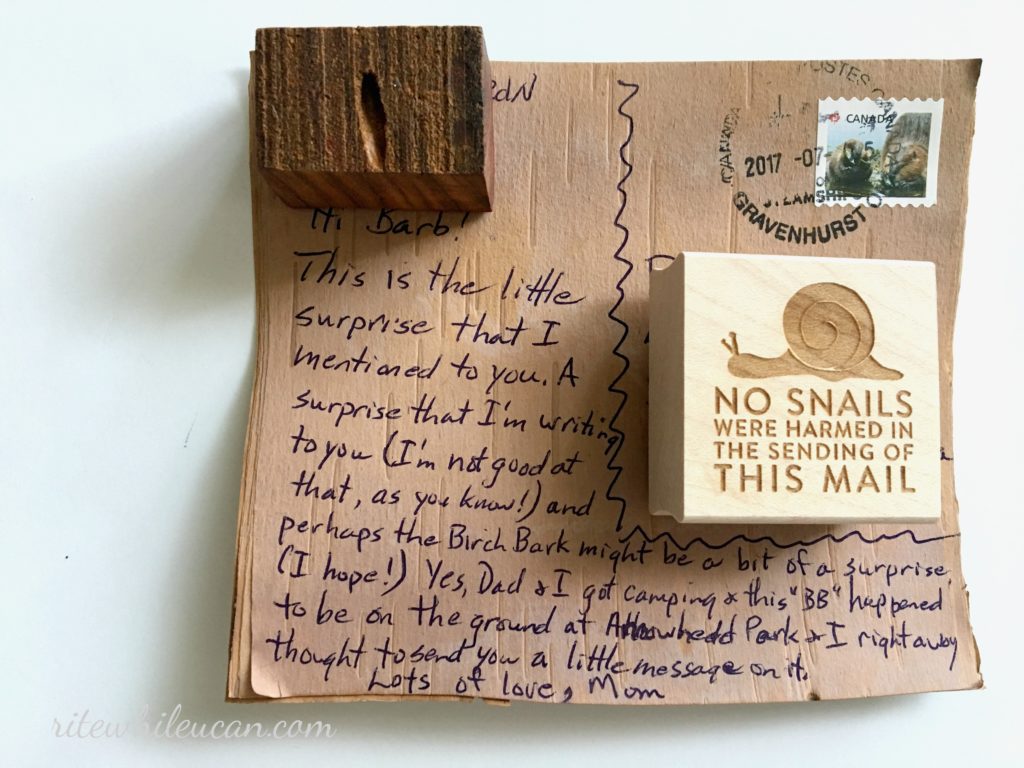 Hi Barb!
This is the little
surprise that I
mentioned to you. A
surprise that I'm writing
to you (I'm not good at
that, as you know!) and
perhaps the Birch Bark might be a bit of a surprise
(I hope!) Yes, Dad & I got camping & this "BB" happened
to be on the ground at Arrowhead Park & I right away
thought to send you a little message on it.
Lots of love, Mom
CANADA
2017-07-
GRAVENHURST
CANADA
NO SNAILS
WERE HARMED IN
THE SENDING OF
THIS MAIL
ritewhileucan.com